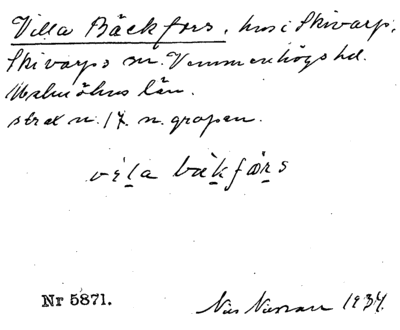 Villa Bäckfors, hus i Skivarp,
Skivarps sn. Vemmenhögs hd.
Malmöhus län.
strax n. 17. n. gropen.
vìla bäkfårs
Nr 5871.
Nils Nilsson 1934.